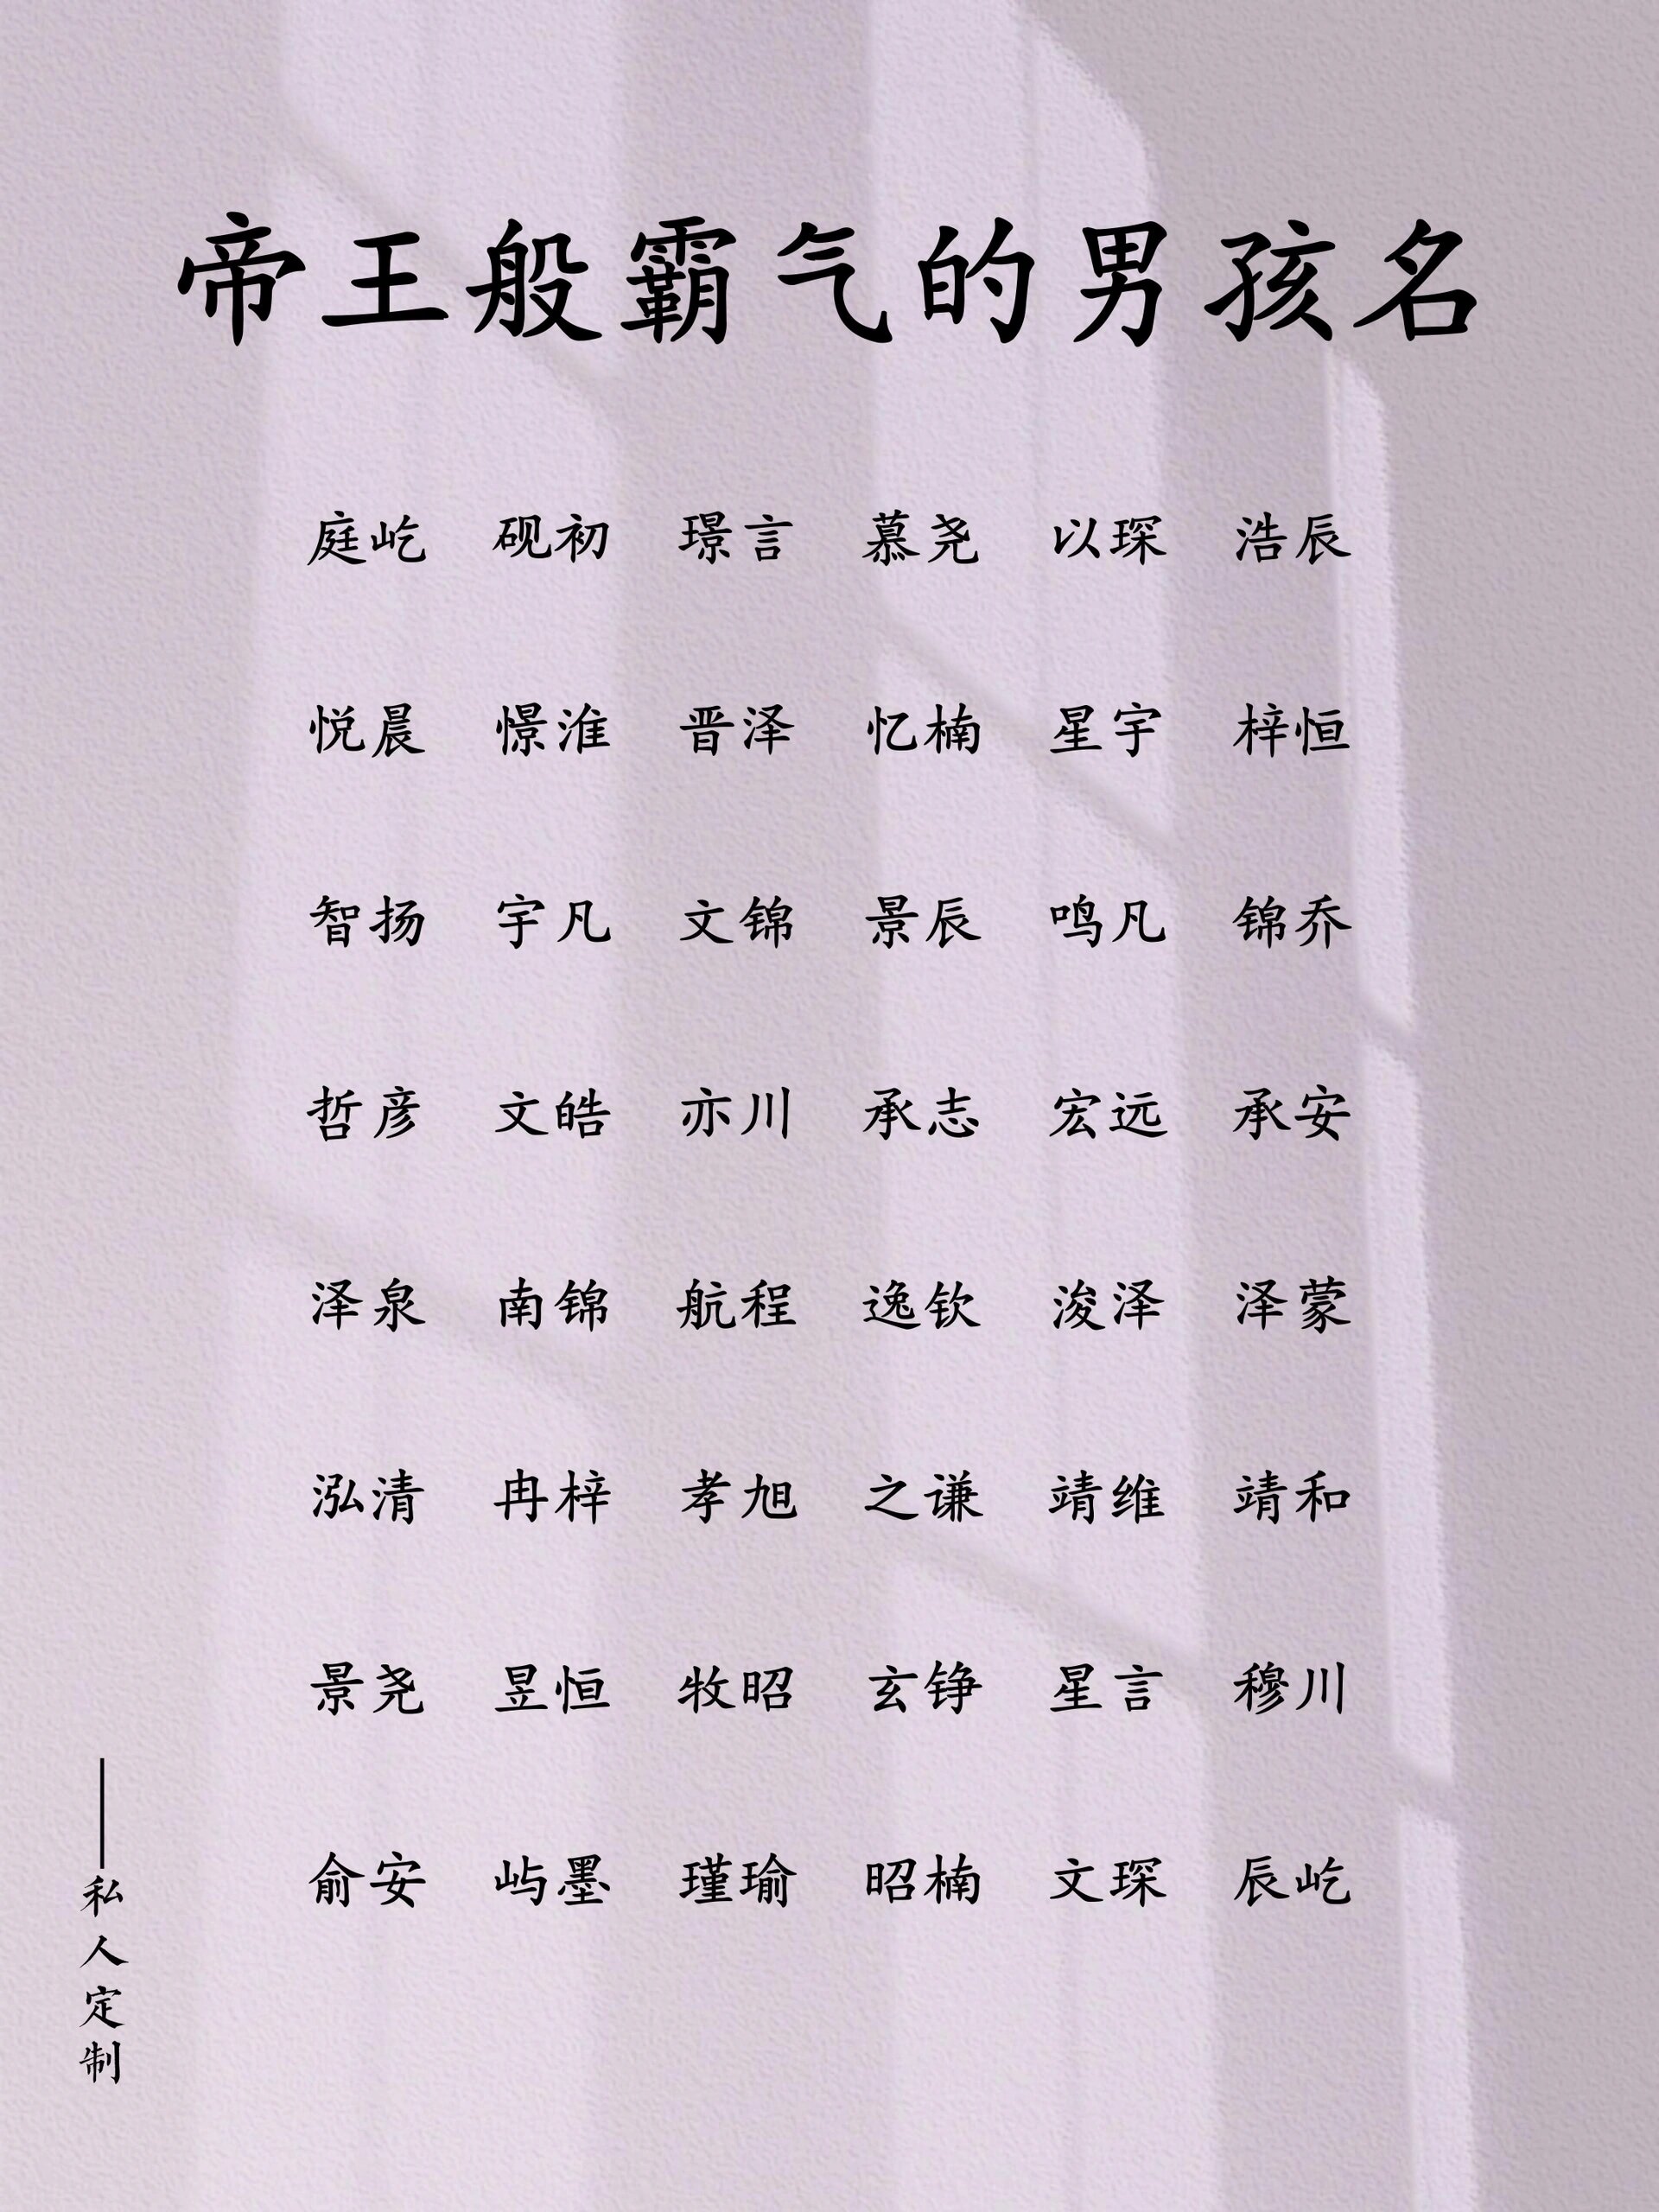 帝王般霸气的男孩名
庭屹 砚初 璟言 慕尧 以琛 浩辰
悦晨 憬淮 晋泽 忆楠 星宇 梓恒
智扬 宇凡 文锦 景辰 鸣凡 锦乔
哲彦 文皓 亦川 承志 宏远 承安
泽泉 南锦 航程 逸钦 浚泽 泽蒙
泓清 冉梓 孝旭 之谦 靖维 靖和
景尧 昱恒 牧昭 玄铮 星言 穆川
俞安 屿墨 瑾瑜 昭楠 文琛 辰屹
——私人定制